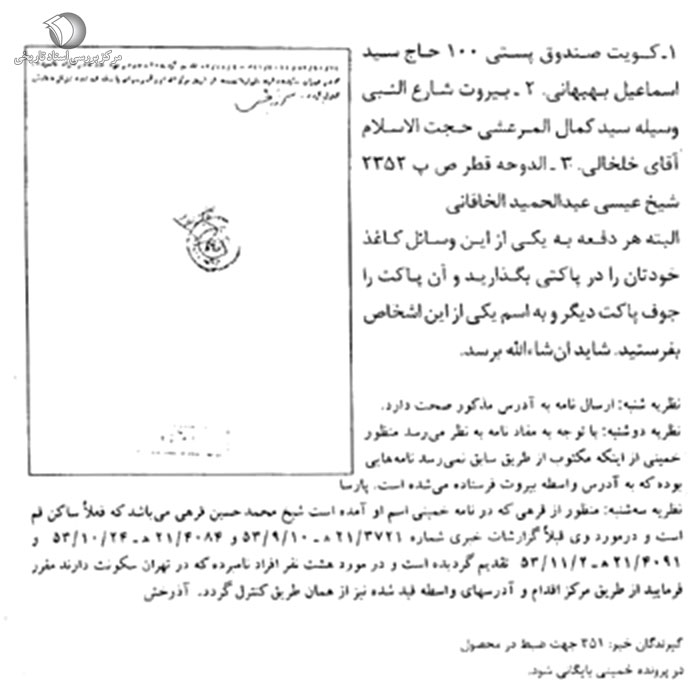 مرکز بررسی اسناد تاریخی
۱ـ کویت صندوق پستی ۱۰۰ حاج سید
اسماعیل بهبهانی. ۲ ـ بیروت شارع النبی
وسیله سید کمال المرعشی حجت الاسلام
آقای خلخالی. ۳ ـ الدوحه قطر ص پ ۲۳۵۲
شیخ عیسی عبدالحمید الخاقانی
البته هر دفعه به یکی از این وسائل کاغذ
خودتان را در پاکتی بگذارید و آن پاکت را
جوف پاکت دیگر و به اسم یکی از این اشخاص
بفرستید. شاید ان‌شاءالله برسد.
نظریه شنبه: ارسال نامه به آدرس مذکور صحت دارد.
نظریه دوشنبه: با توجه به مفاد نامه به نظر می‌رسد منظور
خمینی از اینکه مکتوب از طریق سابق نمی‌رسد نامه‌هایی
بوده که به آدرس واسطه بیروت فرستاده می‌شده است. پارسا
نظریه سه‌شنبه: منظور از فرهی که در نامه خمینی اسم او آمده است شیخ محمد حسین فرهی می‌باشد که فعلاً ساکن قم
است و درمورد وی قبلاً گزارشات خبری شماره ۲۱/۳۷۲۱ه‍ ـ ۵۳/۹/۱۰ و ۲۱/۴۰۸۴ه‍ ـ ۵۳/۱۰/۲۴ و
۲۱/۴۰۹۱ه‍ ـ ۵۳/۱۱/۲ تقدیم گردیده است و در مورد هشت نفر افراد نامبرده که در تهران سکونت دارند مقرر
فرمایید از طریق مرکز اقدام و آدرسهای واسطه قید شده نیز از همان طریق کنترل گردد. آذرخش
گیرندگان خبر: ۲۵۱ جهت ضبط در محصول
در پرونده خمینی بایگانی شود.